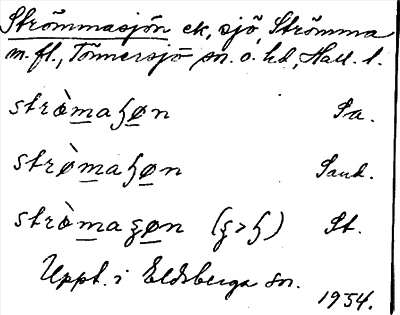 Strömmasjön ek, sjö, Strömma
m. fl., Tönnersjö sn. o. hd, Hall. l.
strø̀maɧøn Sa.
strø̀maɧøn Sand.
strø̀maʂøn (ʂ>ɧ) St.
Uppt. i Eldsberga sn.
1954.